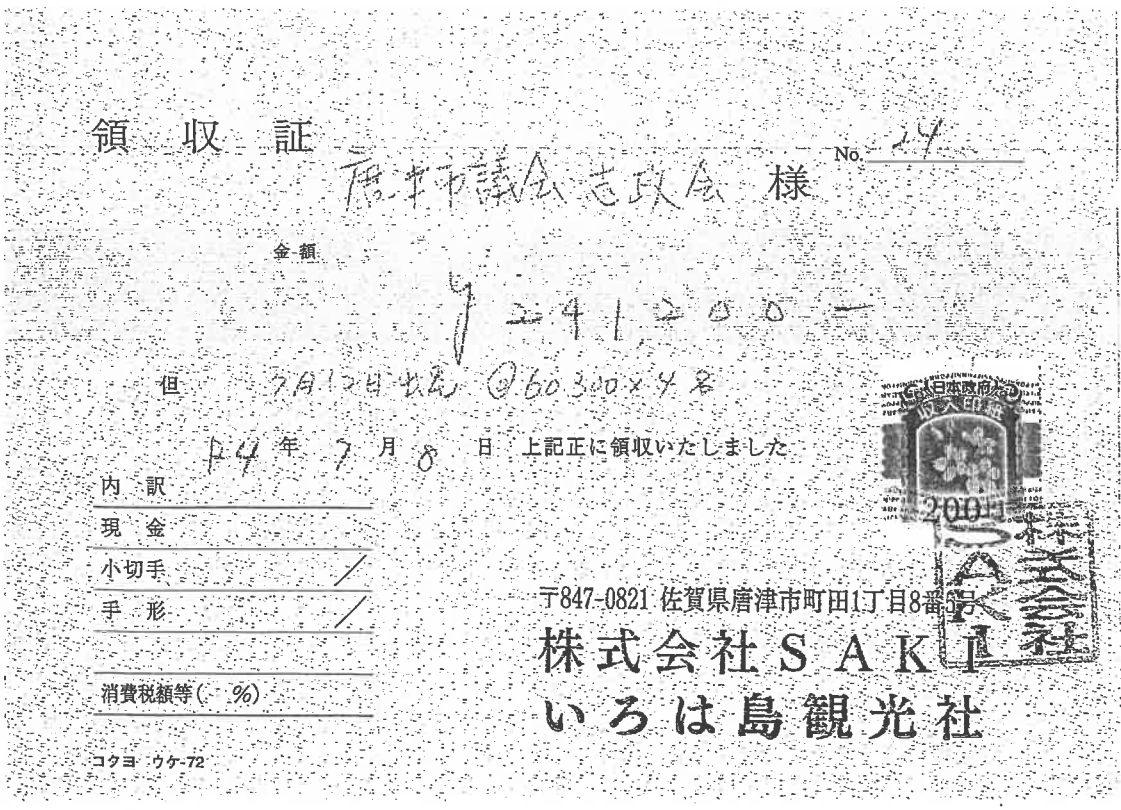 領 収 証
No. 24
唐津市議会志政会 様
金額
¥241,200-
但 7月12日出発 @60300×4名
R4年 7月 8日 上記正に領収いたしました
内 訳
現 金
小切手 /
手 形 /
消費税額等( %)
コクヨ ウケ-72
日本政府
収入印紙
200円
株式会社
SAKI
〒847-0821 佐賀県唐津市町田1丁目8番5号
株式会社SAKI
いろは島観光社